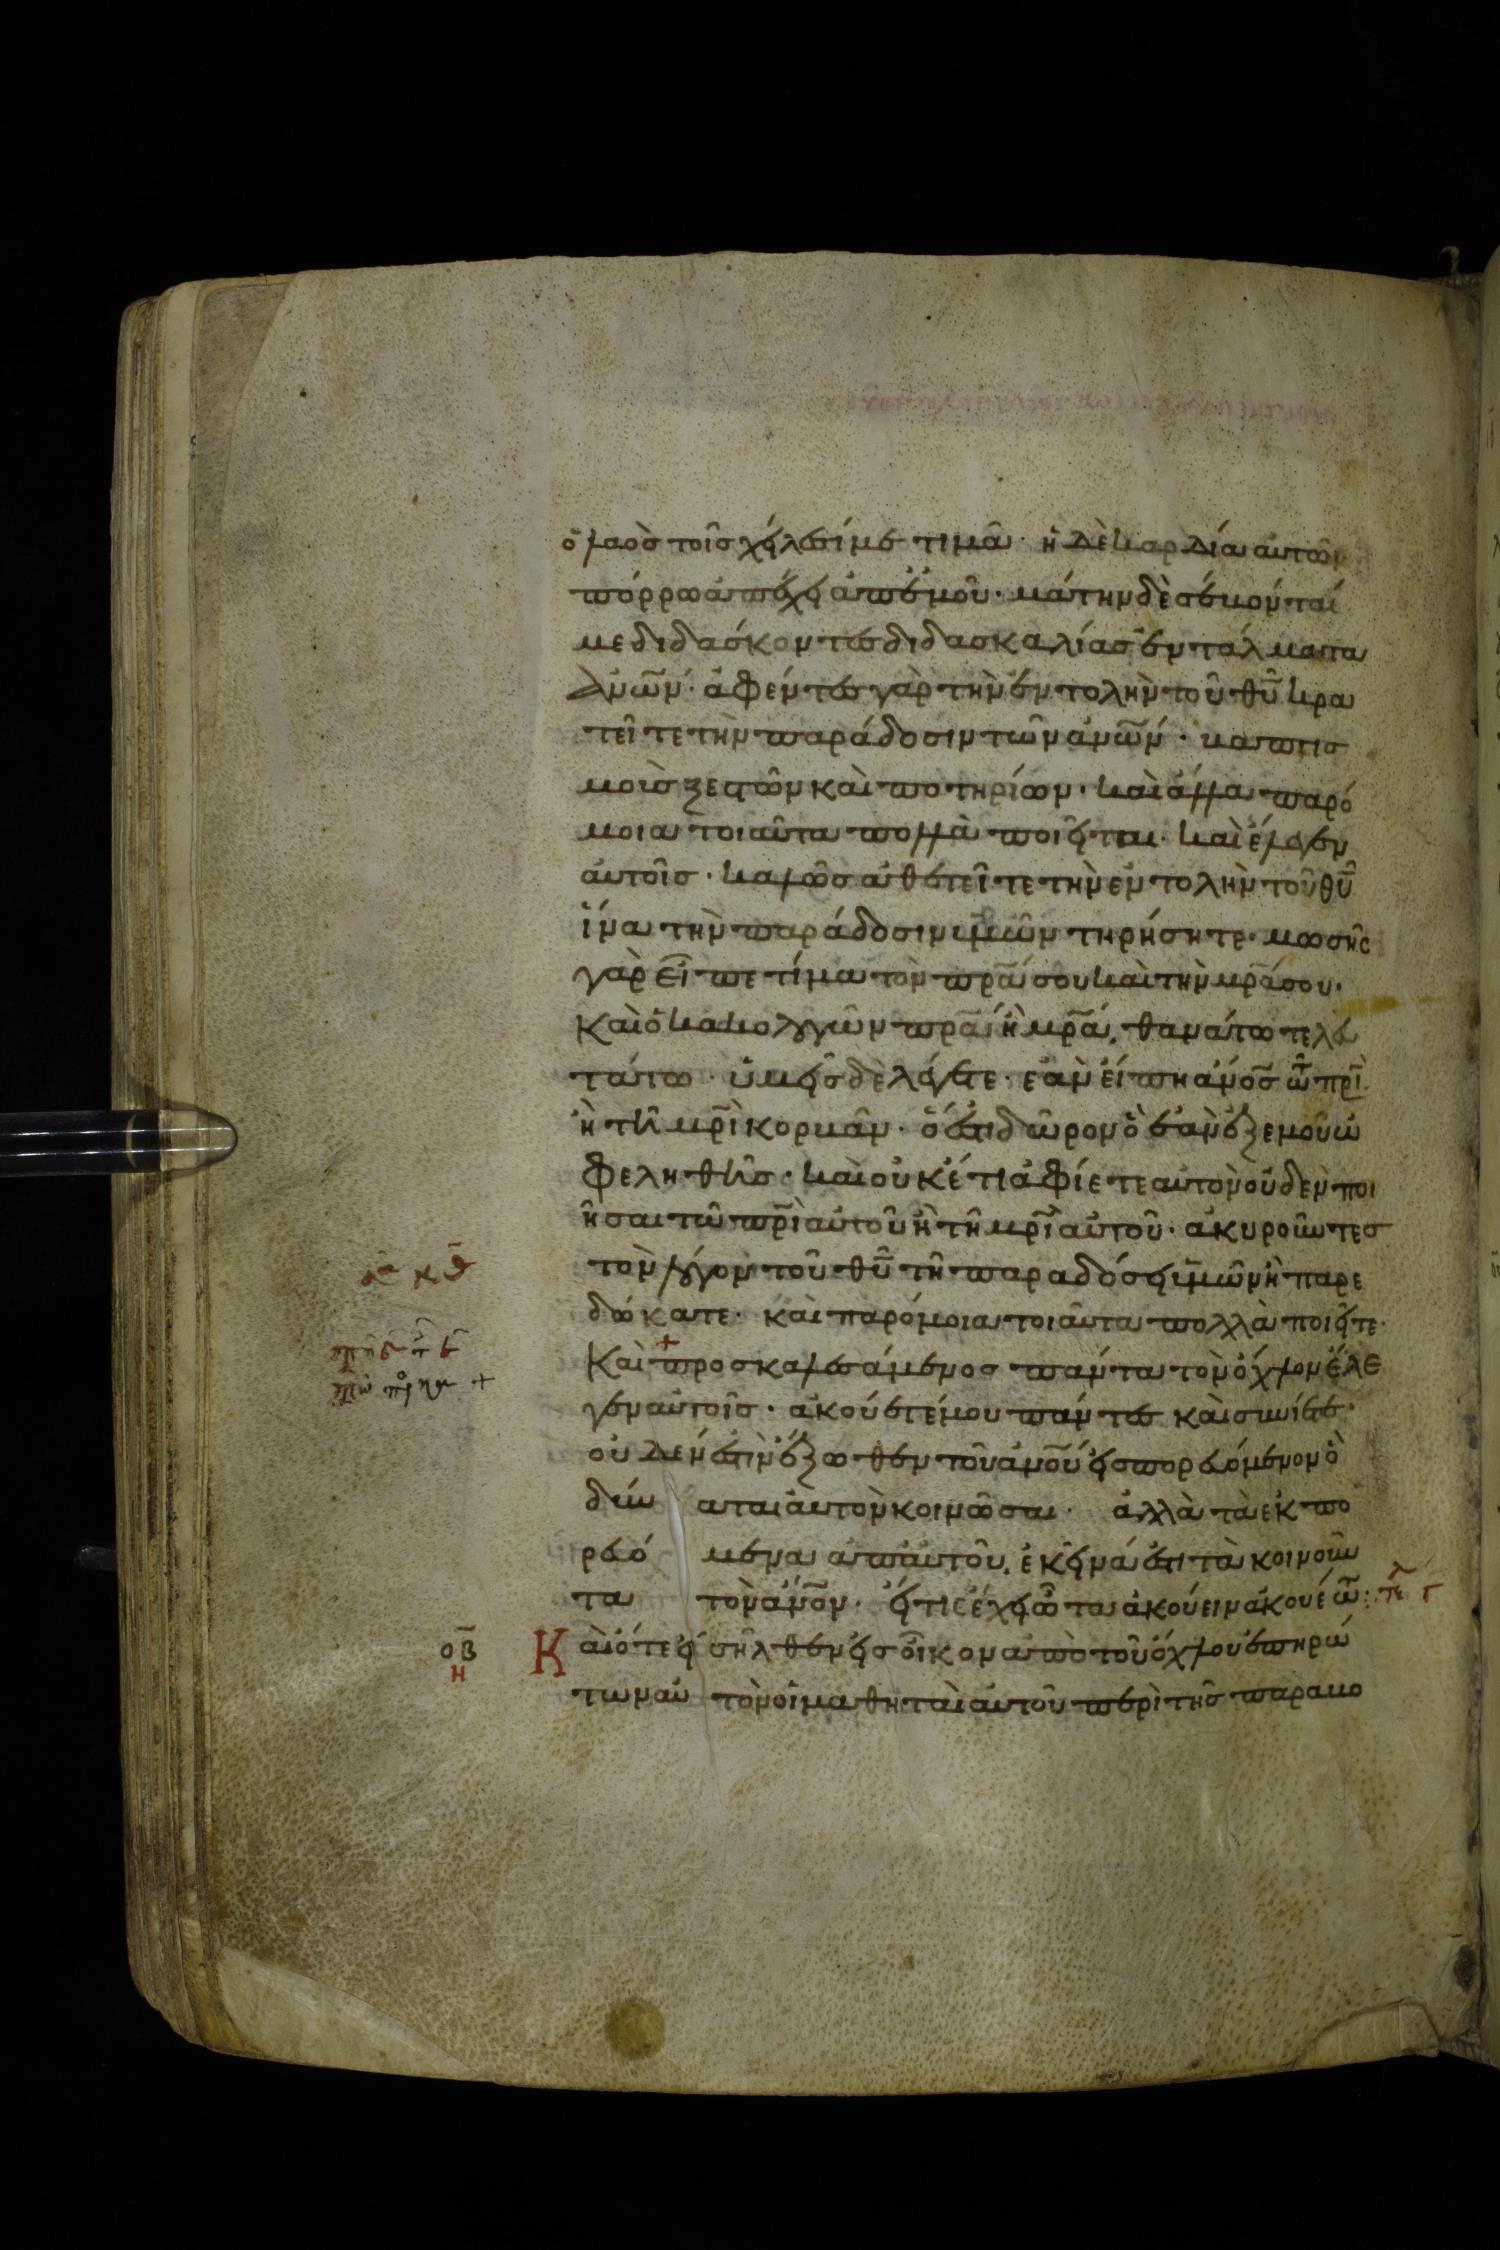 ὁ λαὸς τοῖς χείλεσί με τιμᾶ· ἡ δὲ καρδία αὐτῶν
πόρρω ἀπέχει ἀπ' ἐμοῦ· μάτην δὲ σέβονταί
με διδάσκοντες διδασκαλίας ἐντάλματα
ἀνῶν· ἀφέντες γὰρ τὴν ἐντολὴν τοῦ θῦ κρα
τεῖτε τὴν παράδοσιν τῶν ἀνῶν· βαπτισ
μοὺς ξεστῶν καὶ ποτηρίων· καὶ ἄλλα παρό
μοια τοιαῦτα πολλὰ ποιεῖται· καὶ ἔλεγεν
αὐτοῖς· καλῶς ἀθετεῖτε τὴν ἐντολὴν τοῦ θῦ
ἵνα τὴν παράδοσιν ὑμῶν τηρήσητε· μωσῆς
γὰρ εἶπε τίμα τὸν πρα σου καὶ τὴν μρα σου·
Καὶ ὁ κακολογῶν πρα ἢ μρα, θανάτω τελευ
τάτω· ὑμεῖς δὲ λέγετε· ἐὰν εἴπη ἄνος τῶ πρι
ἢ τῆ μρι κορβᾶν· ὅ ἐστι δῶρον ὃ ἐὰν ἐξ ἐμοῦ ὠ
φεληθῆς· καὶ οὐκέτι ἀφίετε αὐτὸν οὐδὲν ποι
ῆσαι τῶ πρι αὐτοῦ ἢ τῆ μρι αὐτοῦ· ἀκυροῦντες
τὸν λόγον τοῦ θῦ τῆ παραδόσει ὑμῶν ἧ παρε
δώκατε· καὶ παρόμοια τοιαῦτα πολλὰ ποιεῖτε·
Καὶ + προσκαλεσάμενος πάντα τὸν ὄχλον ἔλε
γεν αὐτοῖς· ἀκούετέ μου πάντες καὶ συνίετε·
οὐδέν ἐστιν ἔξωθεν τοῦ ἀνοῦ εἰσπορευόμενον ὃ
δύναται αὐτὸν κοινῶσαι· ἀλλὰ τὰ ἐκπο
ρευόμενα ἀπ' αὐτοῦ, ἐκεῖνά ἐστι τὰ κοινοῦν
τα τὸν ἄνον· εἴ τις ἔχει ὦτα ἀκούειν ἀκουέτω:
οβ
η
Καὶ ὅτε εἰσῆλθεν εἰς οἶκον ἀπὸ τοῦ ὄχλου ἐπηρώ
των αὐτὸν οἱ μαθηταὶ αὐτοῦ περὶ τῆς παραβο